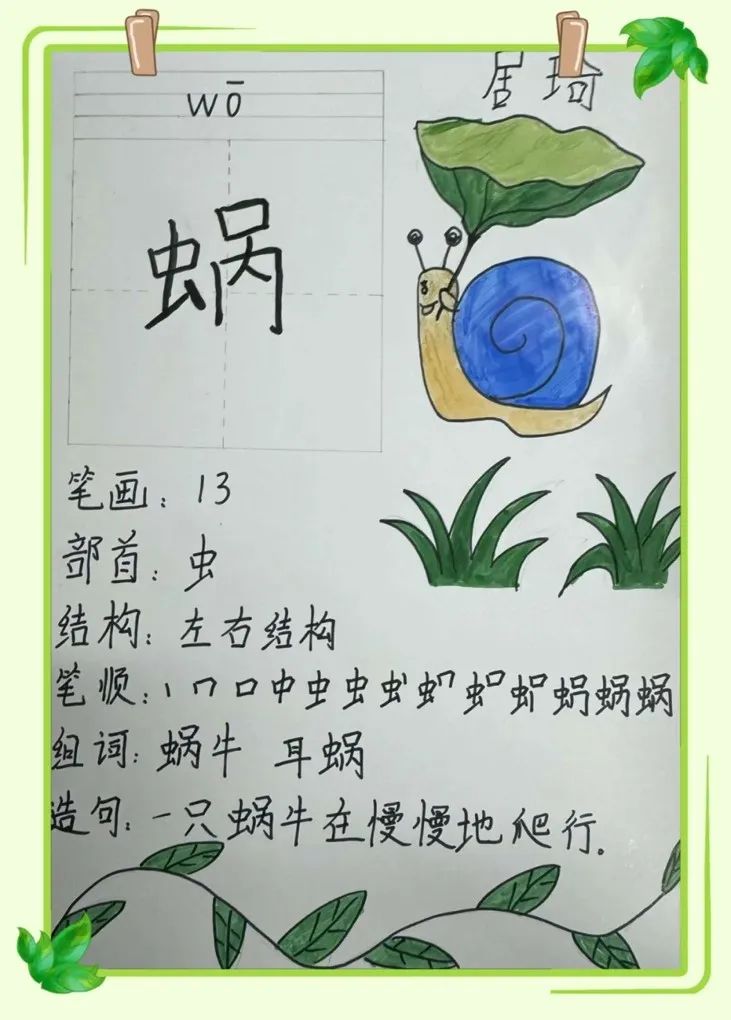 居琦
wō
蜗
笔画：13
部首：虫
结构：左右结构
笔顺：丨 𠃍 口 中 虫 虫 虫丨 虫冂 虫口 蜗 蜗 蜗
组词：蜗牛 耳蜗
造句：一只蜗牛在慢慢地爬行.